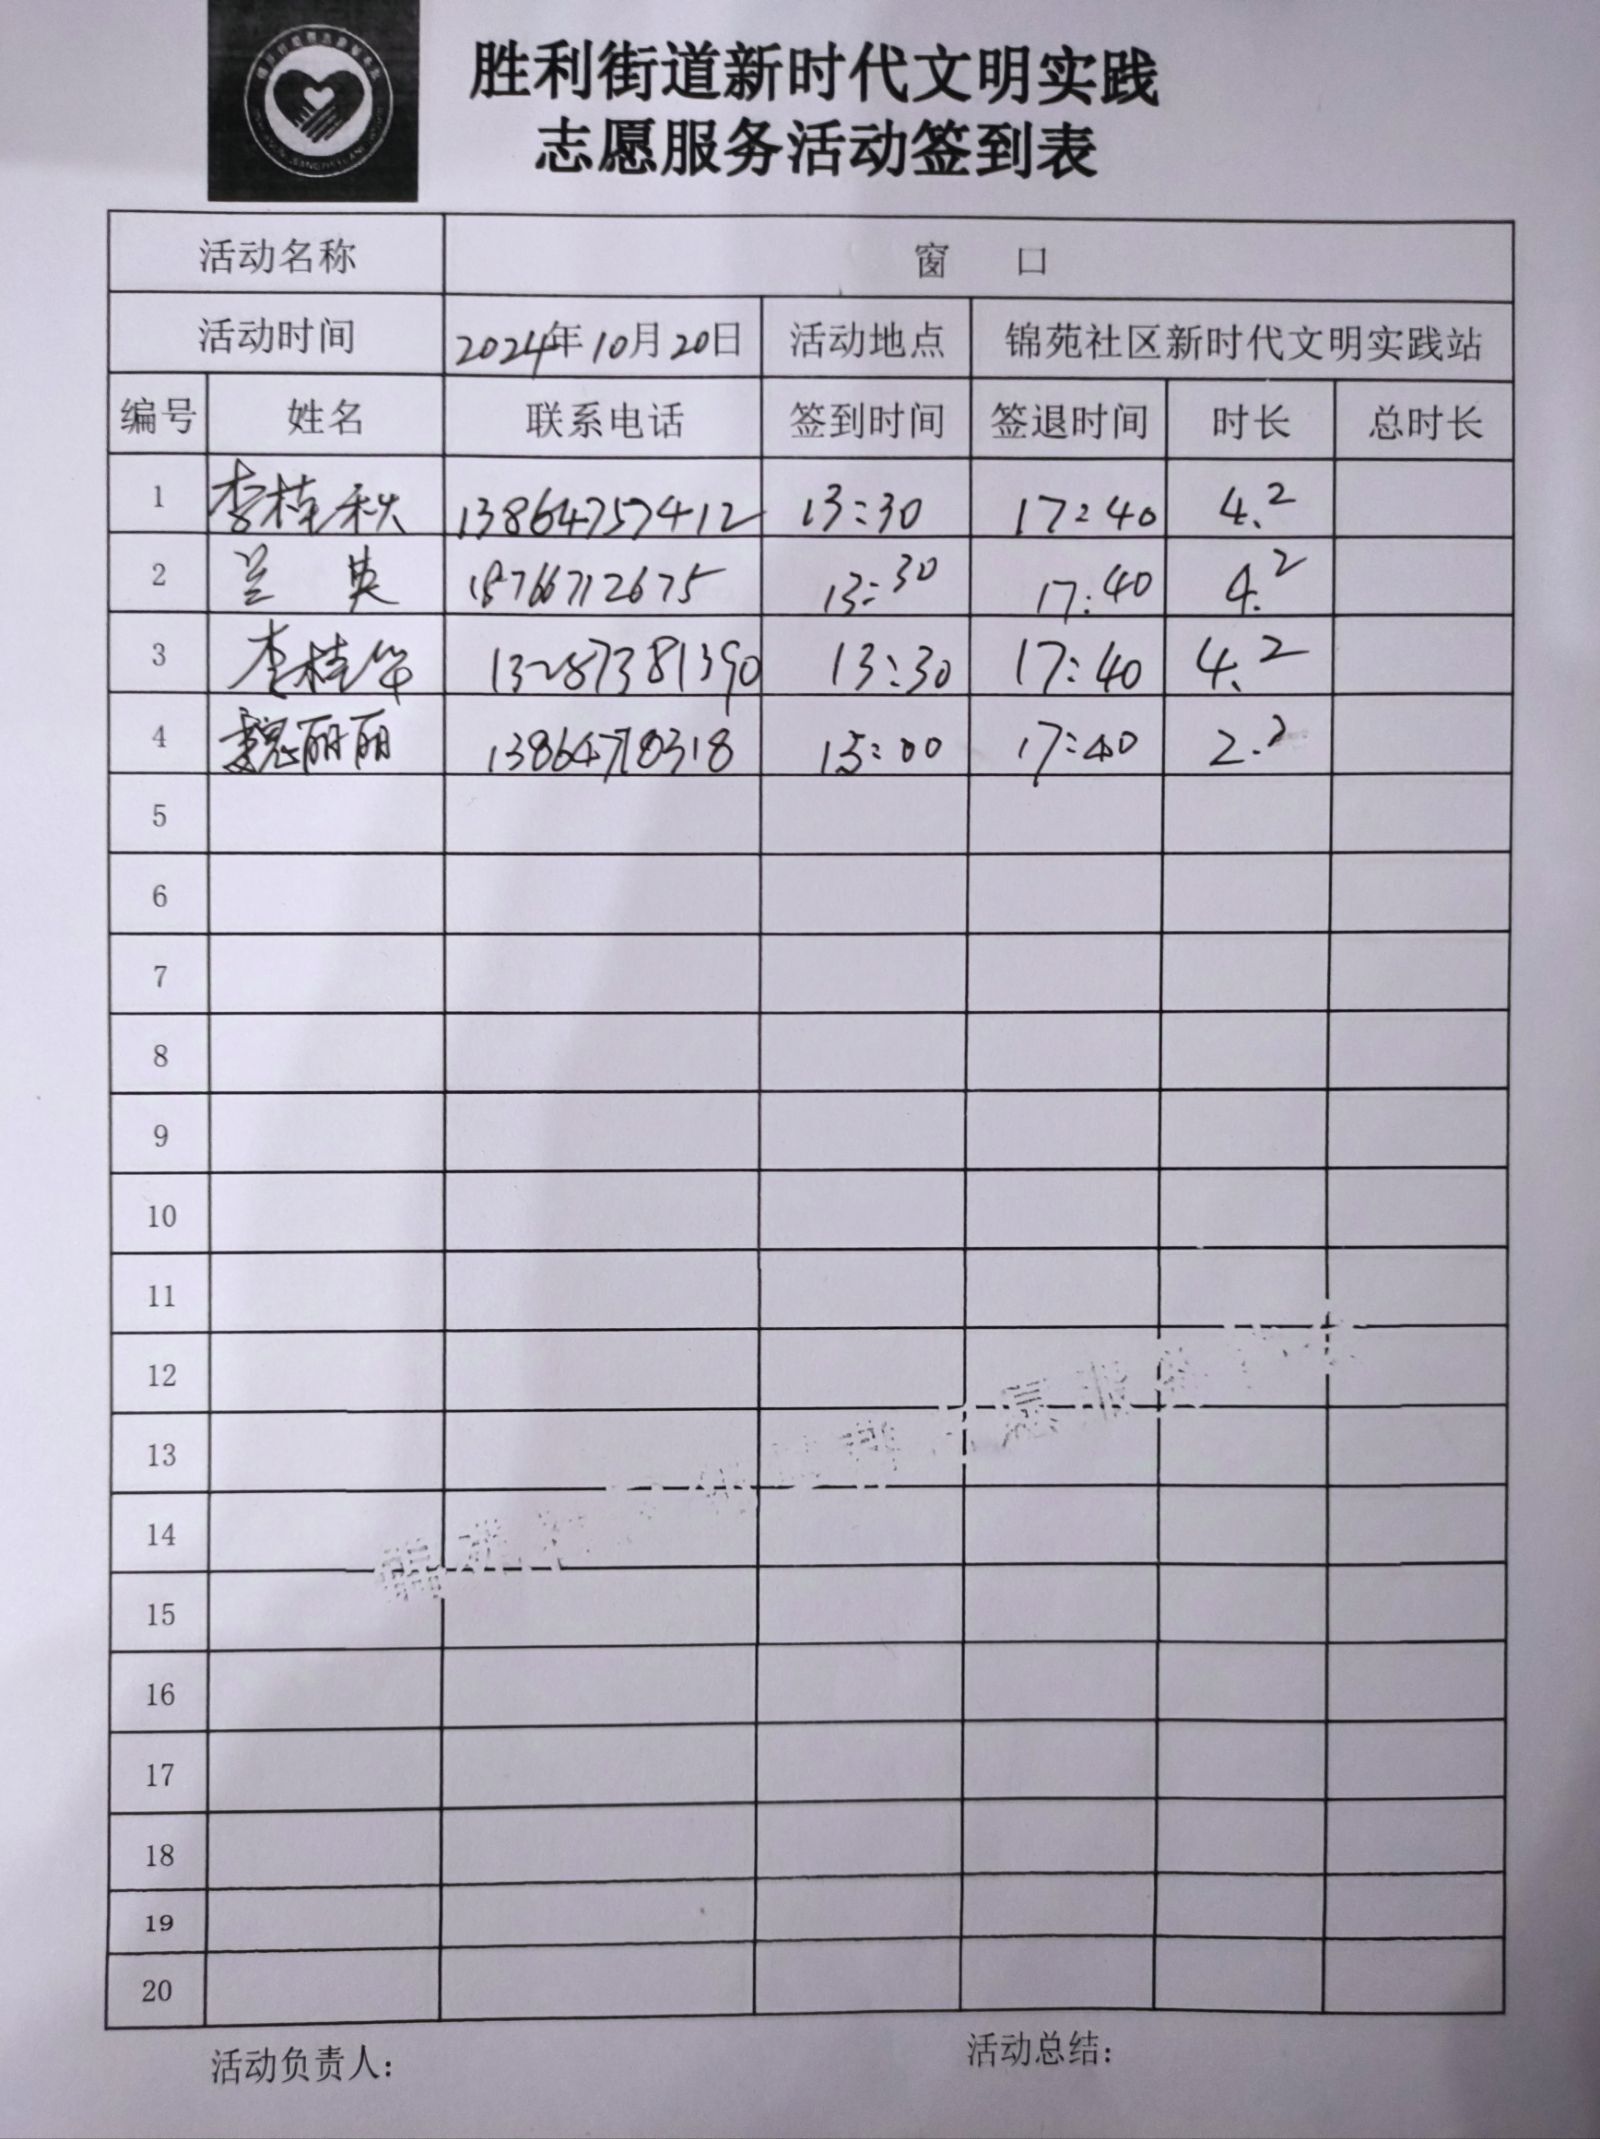 胜利街道新时代文明实践
志愿服务活动签到表
活动名称 窗 口
活动时间 2024年10月20日 活动地点 锦苑社区新时代文明实践站
编号 姓名 联系电话 签到时间 签退时间 时长 总时长
1 李桂秋 13864757412 13:30 17:40 4.2
2 兰英 15766712675 13:30 17:40 4.2
3 李桂华 13287381390 13:30 17:40 4.2
4 魏丽丽 13864718318 15:00 17:40 2.2
5
6
7
8
9
10
11
12
13
14
15
16
17
18
19
20
活动负责人: 活动总结: